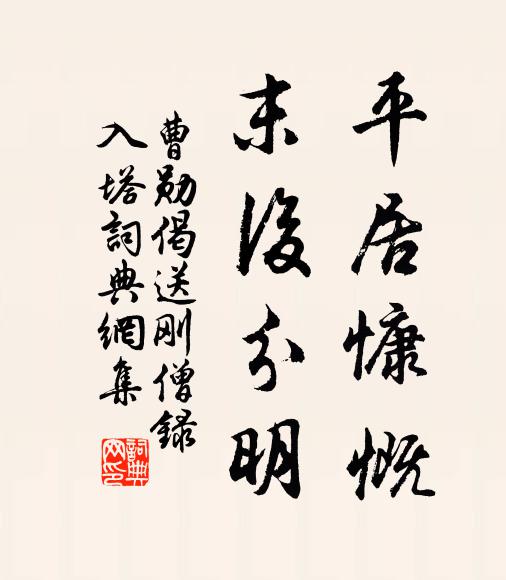 平居慷慨
末後分明
曹勛偈送刚僧録
入塔詞典網集
詞典網印